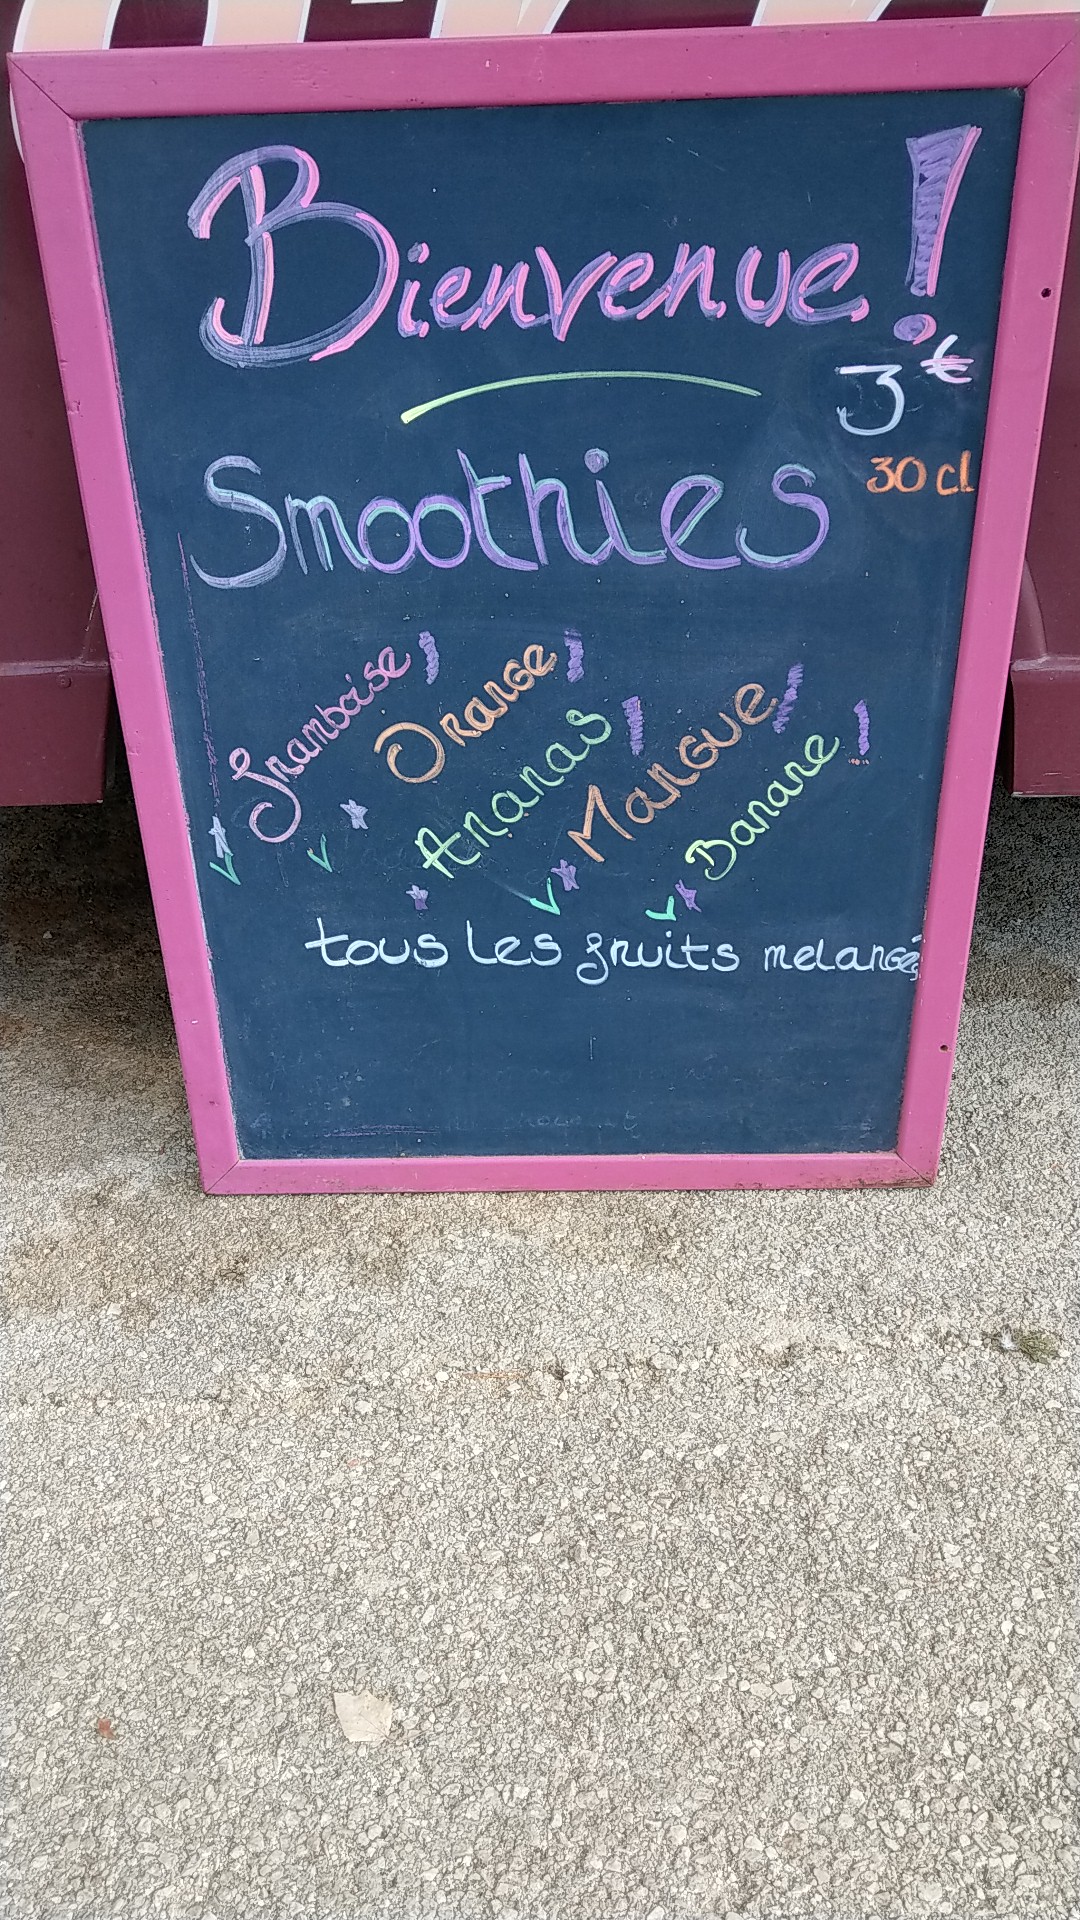 Bienvenue !
3 €
Smoothies
30 cl
Framboise !
Orange !
Ananas !
Mangue !
Banane !
tous les fruits melangés